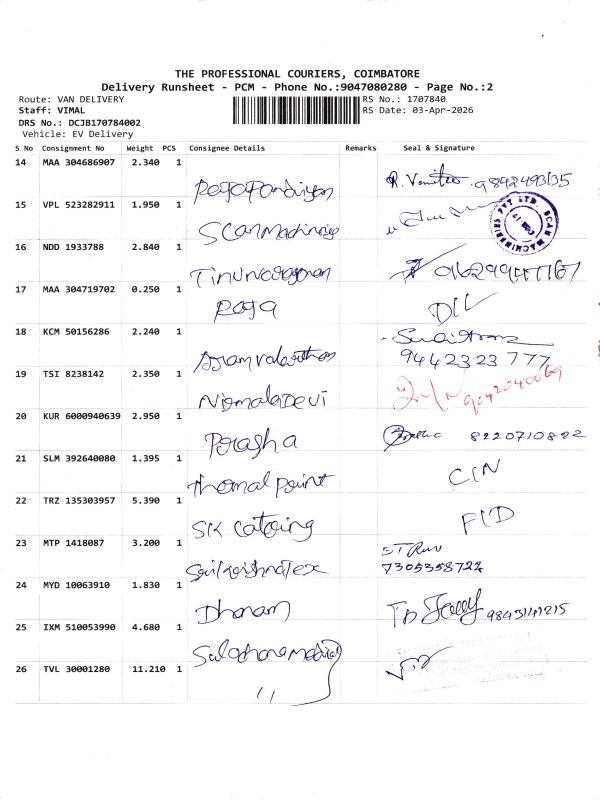 THE PROFESSIONAL COURIERS, COIMBATORE
Delivery Runsheet - PCM - Phone No.:9047080280 - Page No.:2
Route: VAN DELIVERY RS No.: 1707840
Staff: VIMAL RS Date: 03-Apr-2026
DRS No.: DCJB170784002
Vehicle: EV Delivery
S No Consignment No Weight PCS Consignee Details Remarks Seal & Signature
14 MAA 304686907 2.340 1
Ragapandiyan
15 VPL 523282911 1.950 1
Scan Machineries
SCAN MACHINERIES PVT LTD.
16 NDD 1933788 2.840 1
17 MAA 304719702 0.250 1
Raga DIL
18 KCM 50156286 2.240 1
9442323 777
19 TSI 8238142 2.350 1
NirmalaDevi 9042040069
20 KUR 6000940639 2.950 1
21 SLM 392640080 1.395 1
Thermal point CIN
22 TRZ 135303957 5.390 1
SK catering FID
23 MTP 1418087 3.200 1
Saikrishna Tex 7305358722
24 MYD 10063910 1.830 1
Dhanam
25 IXM 510053990 4.680 1
26 TVL 30001280 11.210 1